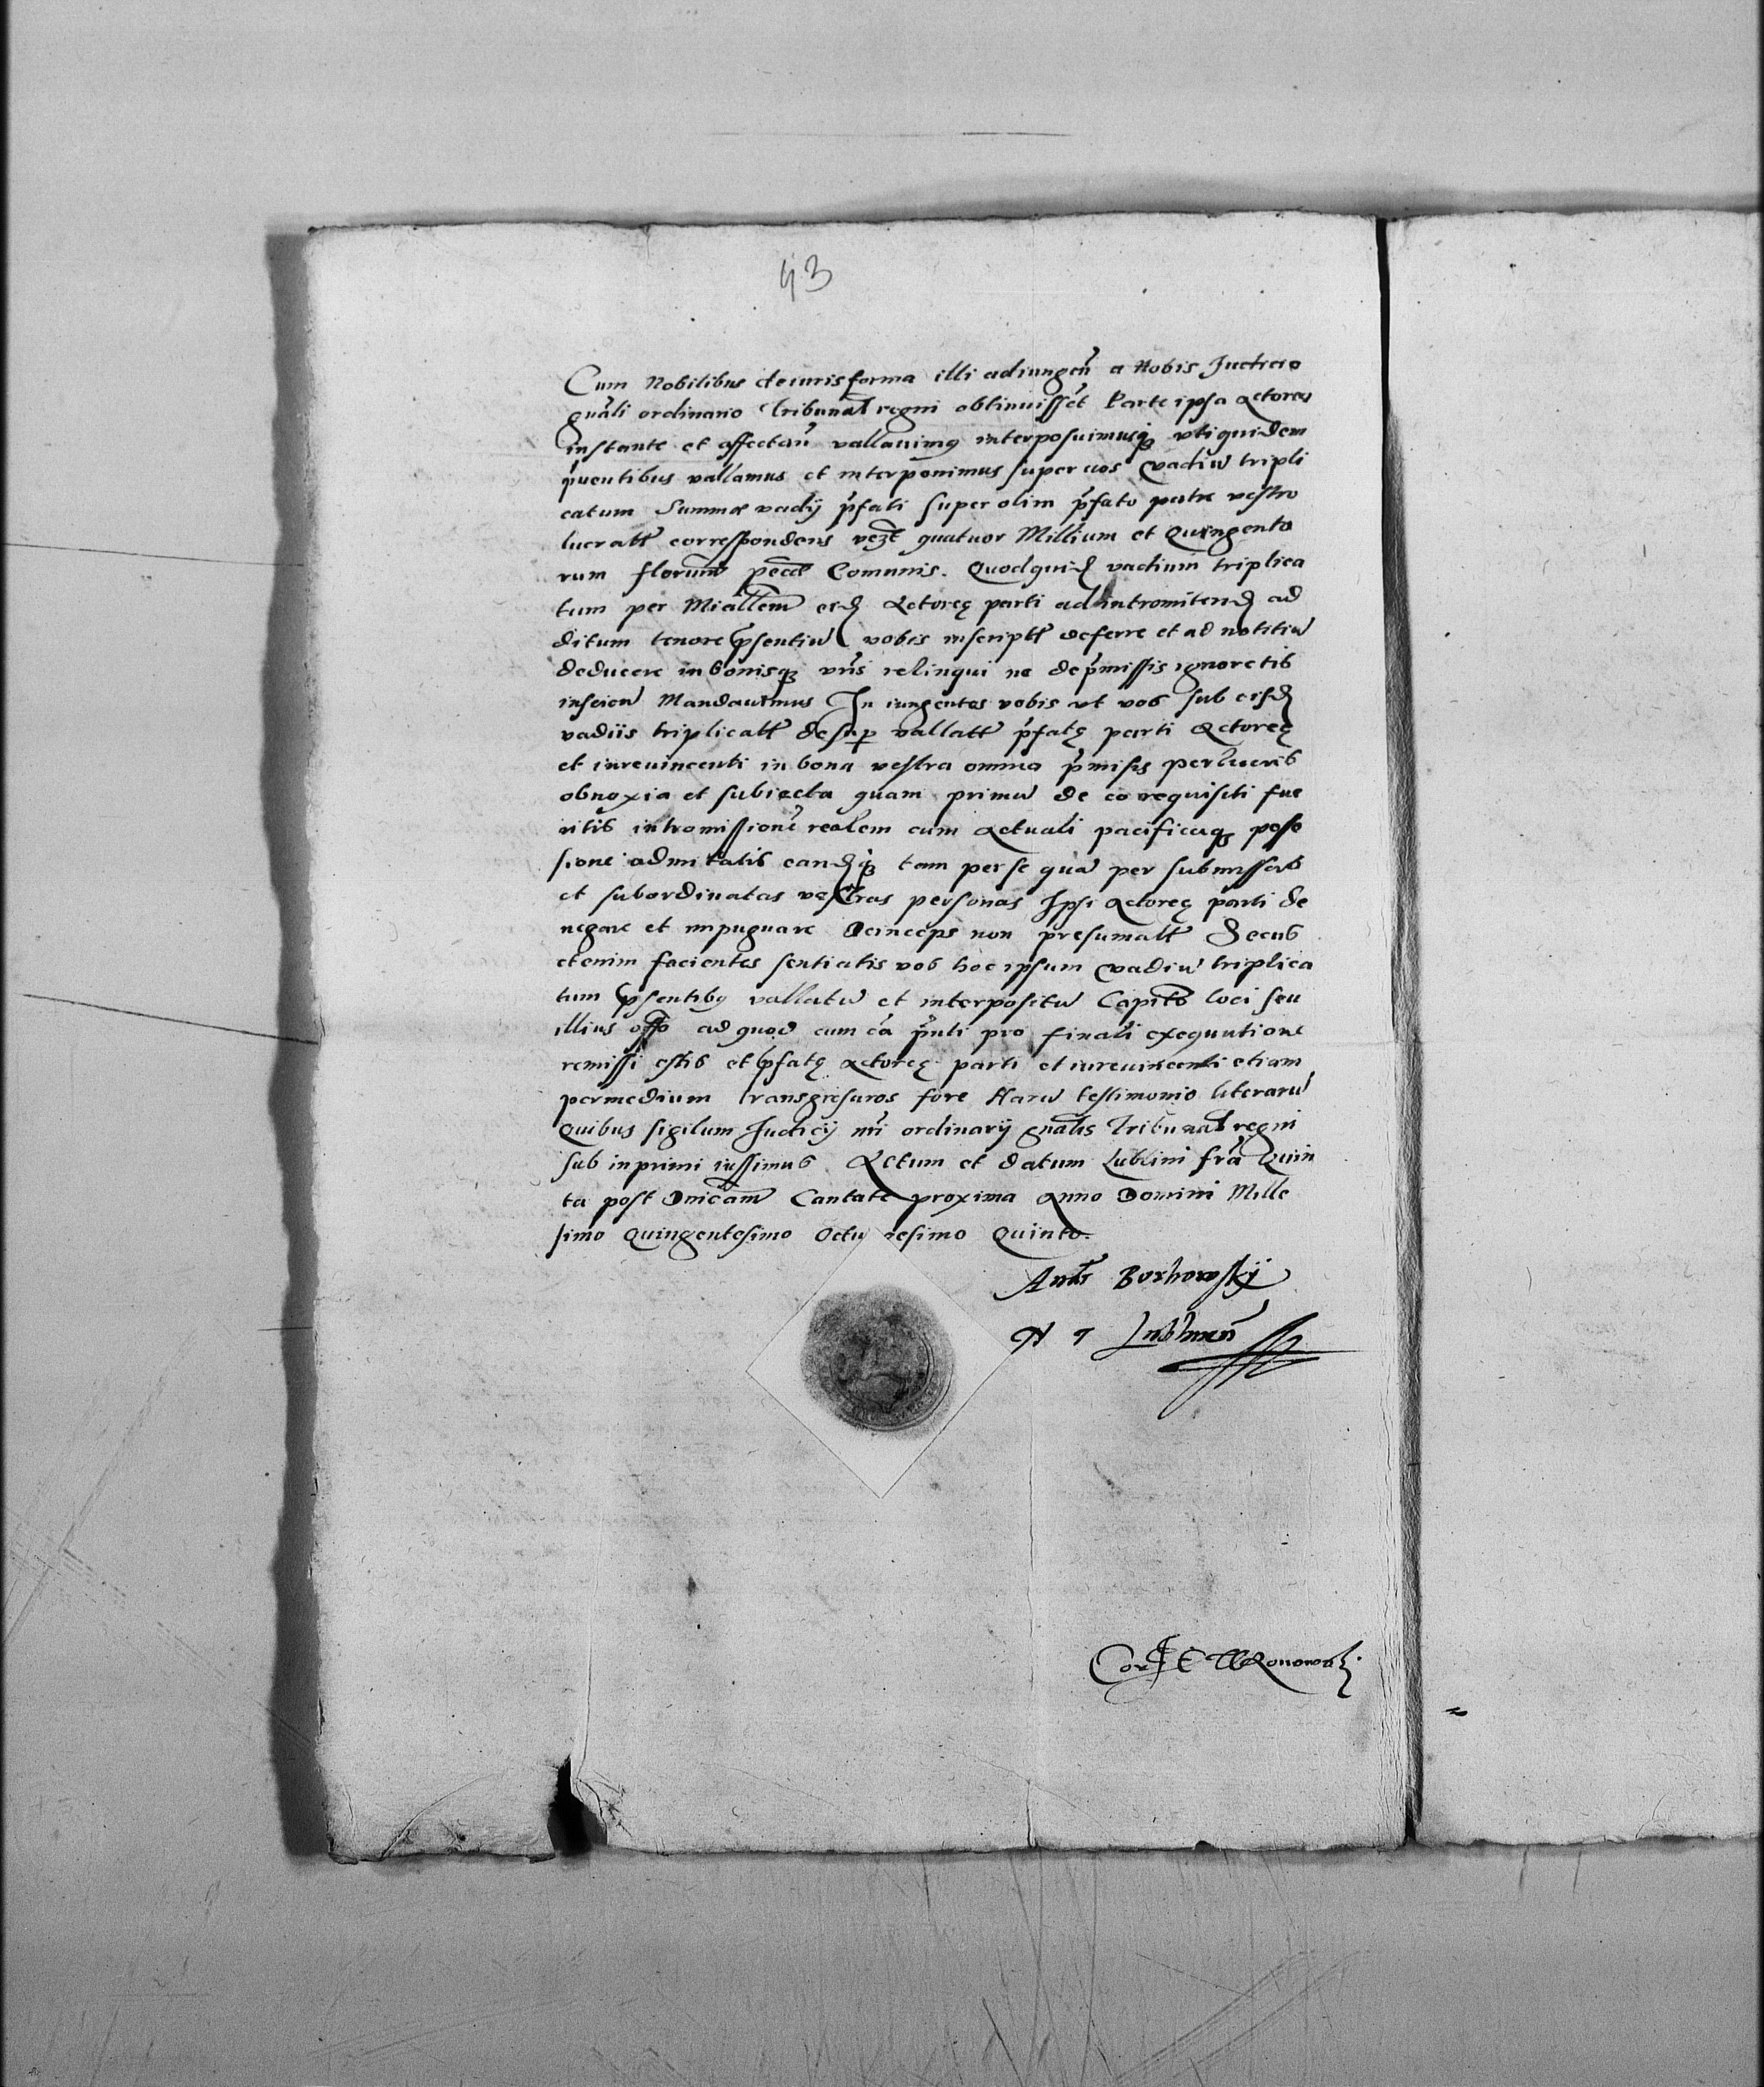 43
Cum Nobilibus de iuris forma illi adiungen̄ a Nobis Judicio
gnāli ordinario Tribunal regni obtinuissēt Parte ipsa Actorea
instante et affectan̄ vallauimus interposuimusq₃ vti quidem
p̄ntibus vallamus et interponimus super vos vadiū tripli
catum Summæ vadij p̄fati super olim p̄fato patre vestro
lucratt correspondens vezt quatuor Millium et Quingento
rum florum̄ pecce Comunis. Quodquid vadium triplica
tum per Miallem̄ eid Actoreę parti ad intromitend ad
ditum tenore p̄sentiū vobis inscriptt deferre et ad notitiū
deducere in bonisq₃ vrīs relinqui ne de p̄missis ignoretis
inscien̄ Mandauimus In iungentes vobis vt vos sub eisd
vadiis triplicatt desup vallatt p̄fatę parti Actoreę
et iureuincenti in bona vestra omnia p̄missis perlucris
obnoxia et subiecta quam primū de eo requisiti fue
ritis intromissionē realem cum Actuali pacificaq₃ posse
sione admittatis eandq₃ tam per se quā per submissas
et subordinatas vestras personas Ipsi Actoreę parti de
negare et impugnare Deinceps non presumatt Secus
etenim facientes sentiatis vos hoc ipsum vadiū triplica
tum p̄sentibus vallatū et interpositū Capitō loci seu
illius offo ad quod cum cā p̄nti pro finali exequutione
remissi estis et p̄fatę Actoreę parti et iureuincenti etiam
permedium transgresuros fore Harū testimonio literarū
Quibus sigilum Judicij nrī ordinarij gnālis Tribunal regni
sub inprimi iussimus. Actum et datum Lublini frā Quin
ta post Dnicam̄ Cantate proxima Anno Domini Mille
simo Quingentesimo Octu esimo Quinto.
Borhowskÿ
N T Lublinen̄